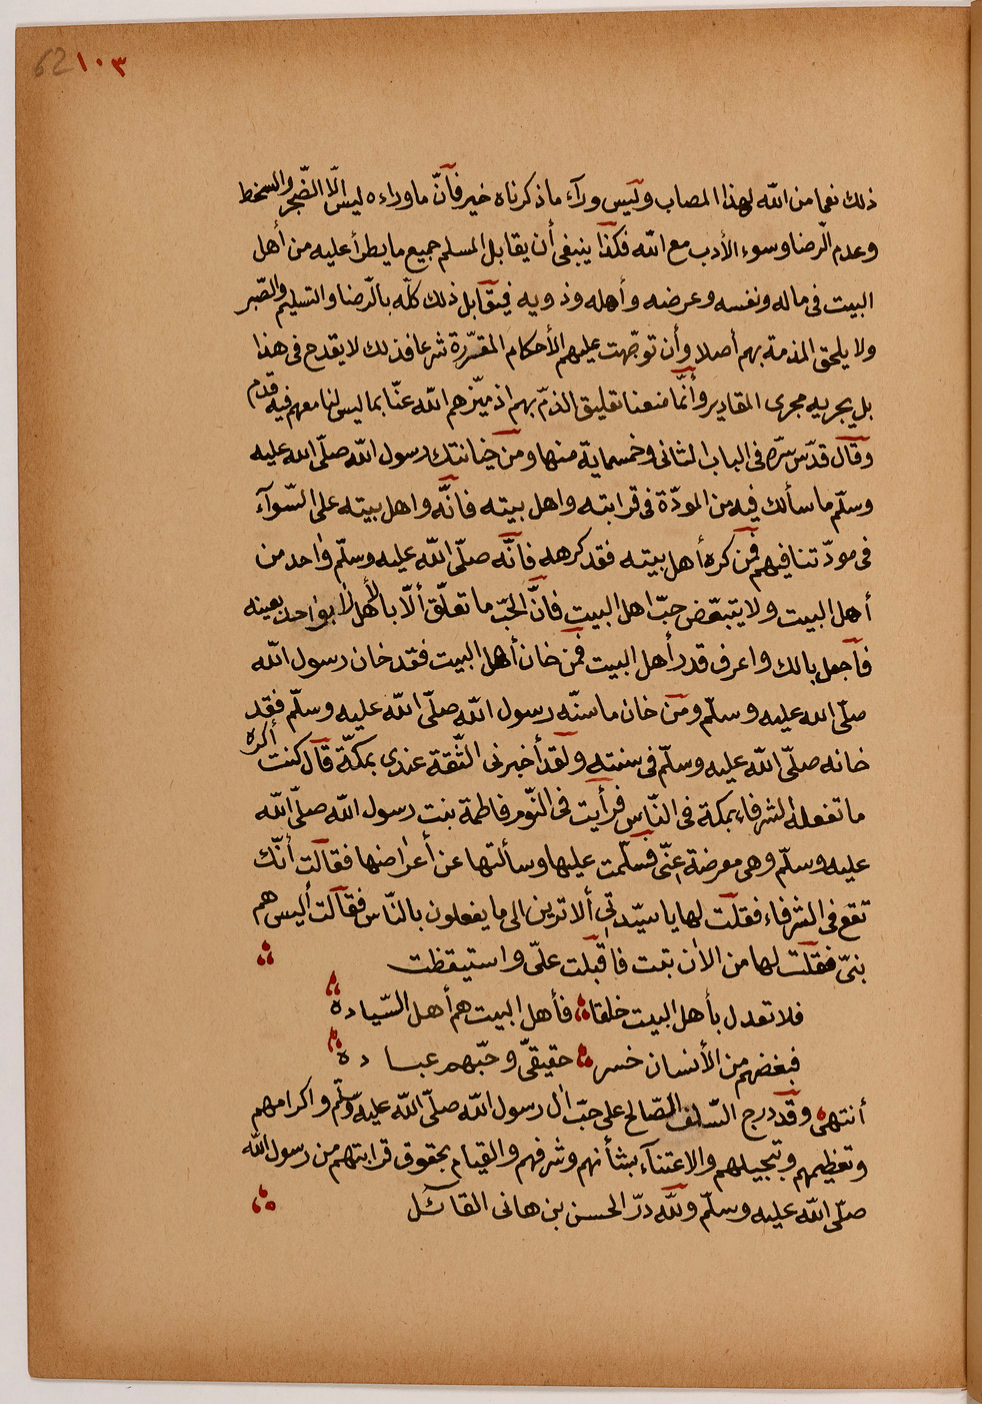 62 ١٠٣
ذلك نعما من الله لهذا المصاب وليس ورآء ما ذكرناه خير فآنّ ما وراءه ليس الّا الضّجر والسخط
وعدم الرّضا وسوء الأدب مع الله فكذا ينبغى أن يقابل المسلم جميع ما يطرأ عليه من أهل
البيت فى ماله ونفسه وعرضه وأهله وذويه فيقابل ذلك كلّه بالرّضا والتسليم والصّبر
ولا يلحق المذمة بهم أصلا وأن توجّهت عليهم الأحكام المقرّرة شرعا فذلك لا يقدح فى هذا
بل يجريه مجرى المقادير وأنّما منعنا تعليق الذمّ بهم اذ ميّزهم الله عنّا بما ليس لنا معهم فيه قدم
وقال قدّس سرّه فى الباب الثانى وخمسماية منها ومن خيانتك رسول الله صلّى الله عليه
وسلّم ما سألك فيه من المودّة فى قرابته واهل بيته فانّه واهل بيته على السّوآء
فى مودّتنا فيهم فمن كره أهل بيته فقد كرهه فانّه صلّى الله عليه وسلّم واحد من
أهل البيت ولا يتبعّض حبّ اهل البيت فانّ الحبّ ما تعلّق ألّا بالأهل لا بواحد بعينه
فآجعل بالك واعرف قدر أهل البيت فمن خان أهل البيت فقد خان رسول الله
صلّى الله عليه وسلّم ومن خان ما سنّه رسول الله صلّى الله عليه وسلّم فقد
خانه صلّى الله عليه وسلّم فى سنته ولقد أخبرنى الثّقة عندى بمكّة قال كنت أكره
ما تفعله الشرفاء بمكة فى النّاس فرأيت فى النّوم فاطمة بنت رسول الله صلّى الله
عليه وسلّم وهى معرضة عنّى فسلّمت عليها وسألتها عن أعراضها فقالت أنّك
تقع فى الشرفاء فقلت لها يا سيّدتى ألا ترين الى ما يفعلون بالنّاس فقالت أليس هم
بنىّ فقلت لها من الان تبت فاقبلت علىّ واستيقظت
فلا تعدل بأهل البيت خلقا فأهل البيت هم أهل السّيادة
فبغضهم من الأنسان خسر حقيقىّ وحبّهم عبادة
أنتهى وقد درج السّلف الصّالح على حبّ ال رسول الله صلّى الله عليه وسلّم واكرامهم
وتعظيمهم وتبجيلهم والاعتنآء بشأنهم وشرفهم والقيام بحقوق قرابتهم من رسول الله
صلّى الله عليه وسلّم ولله درّ الحسن بن هانى القائل